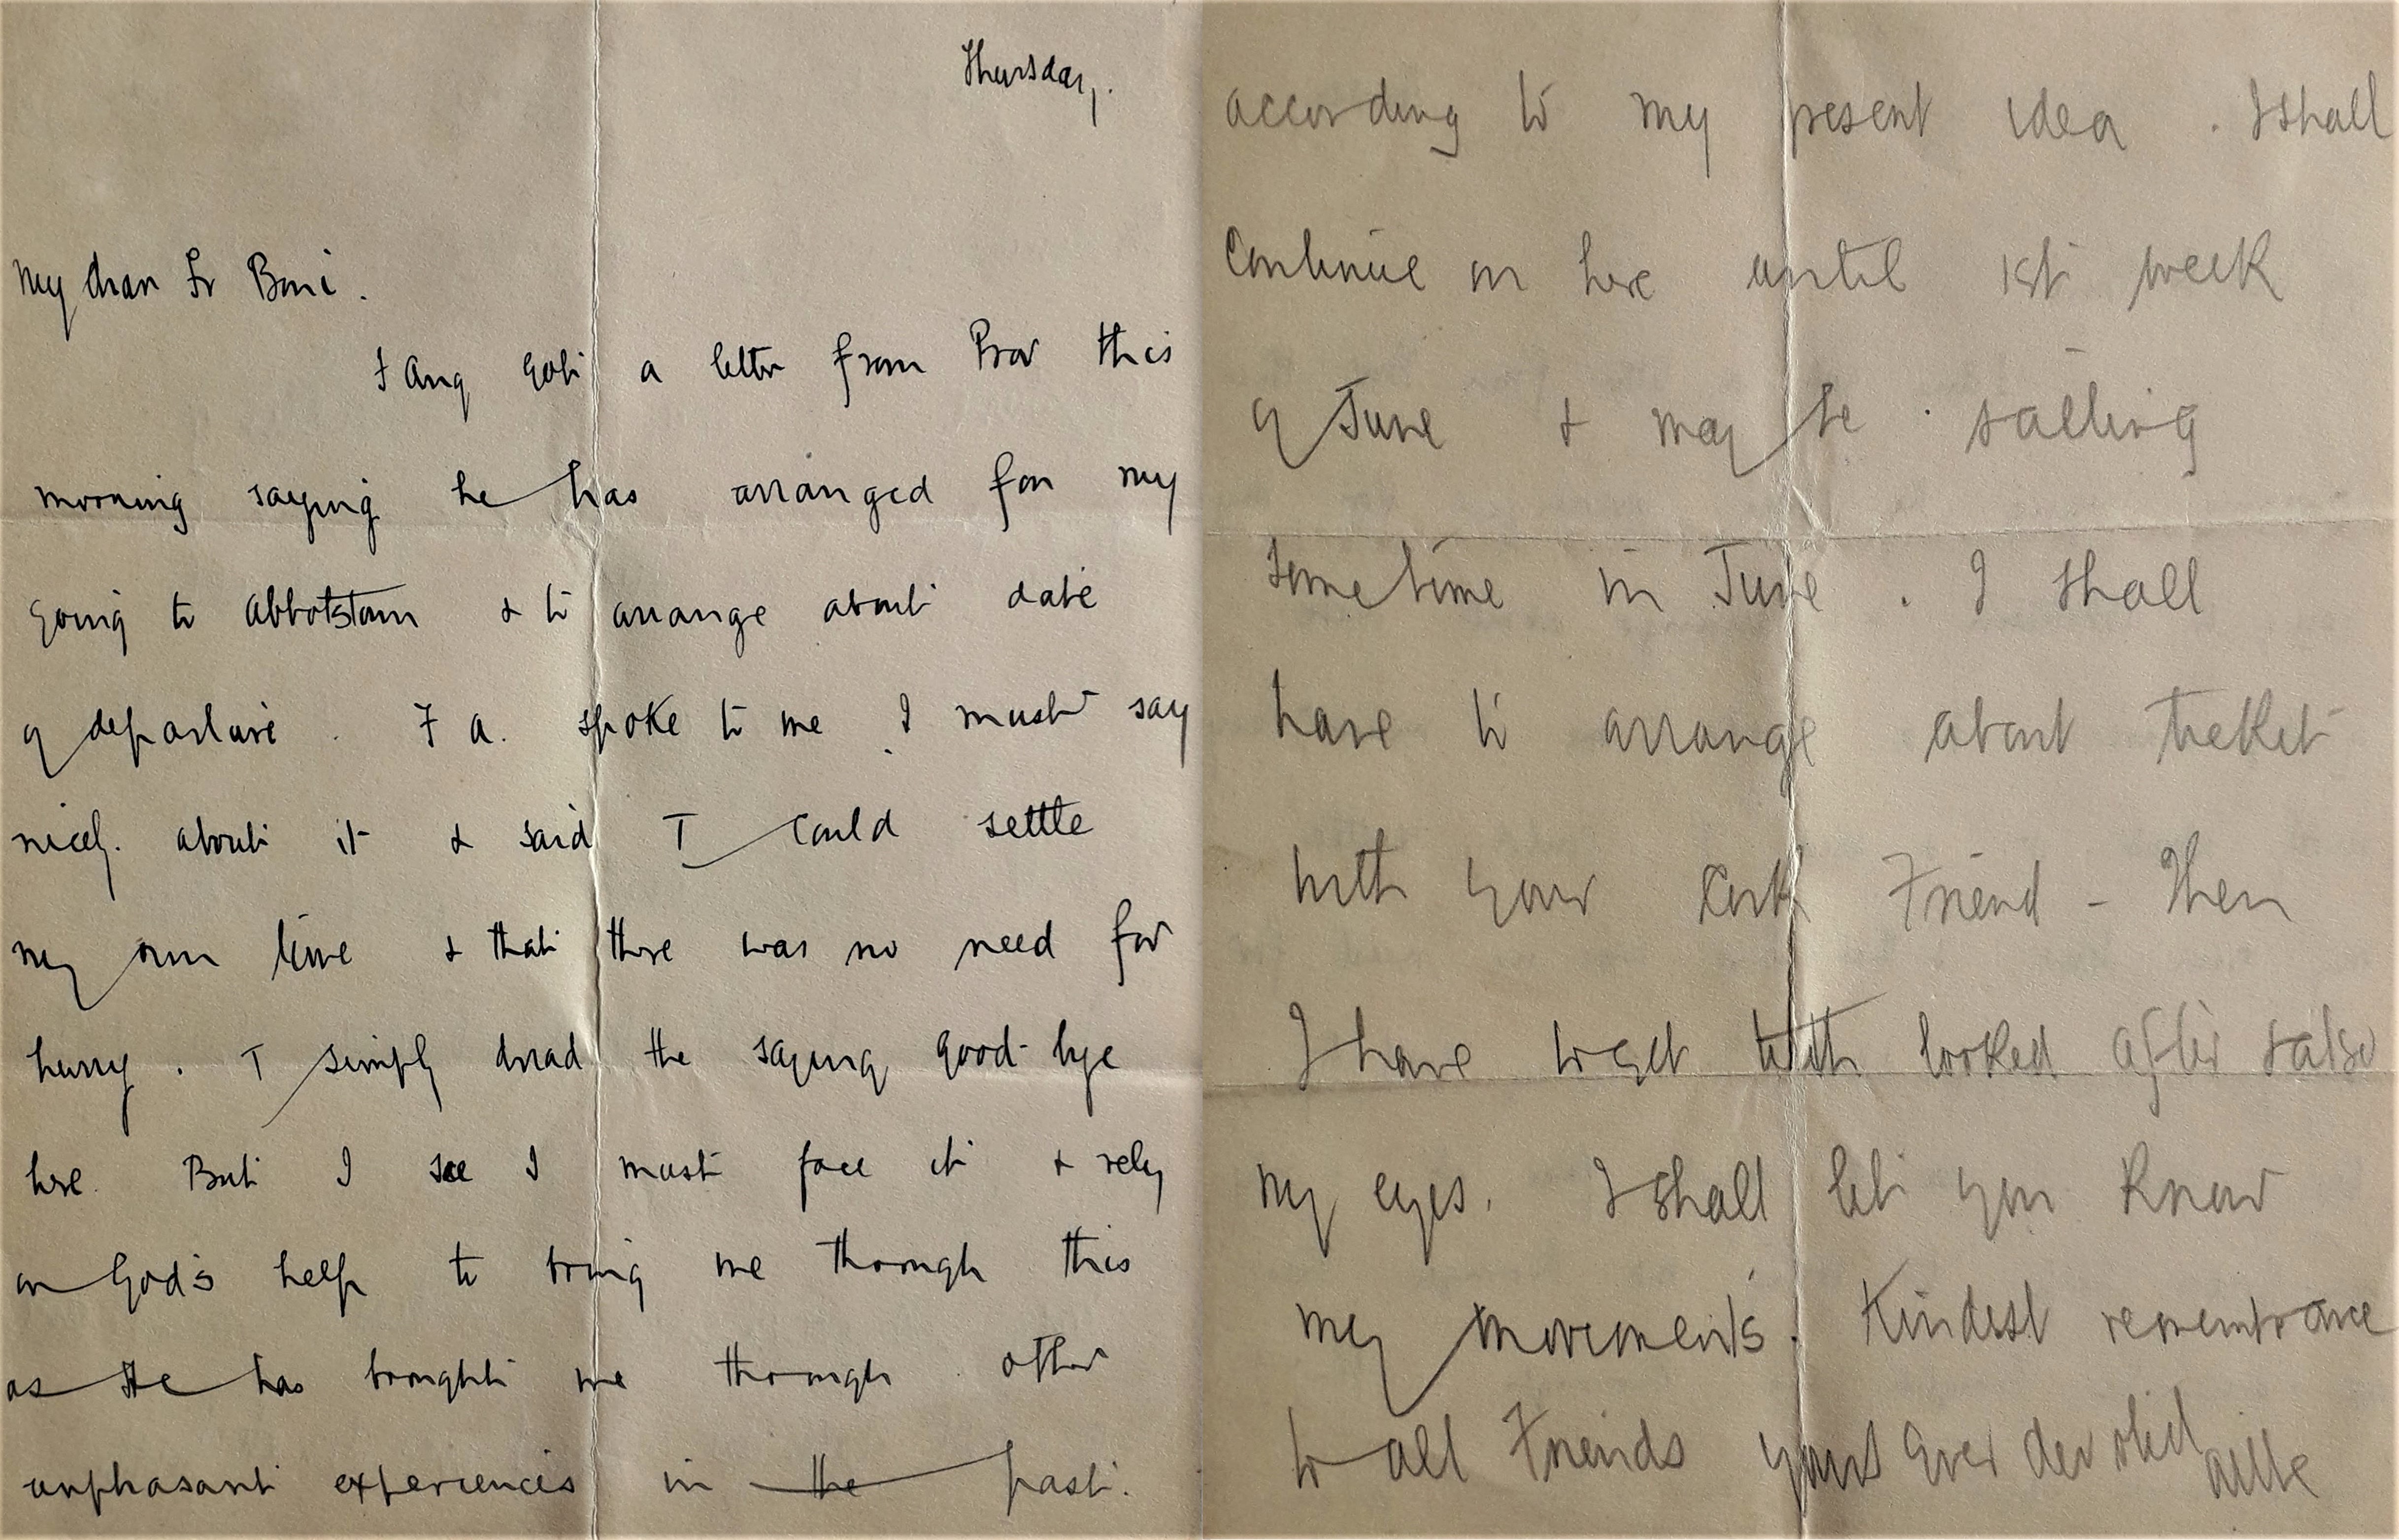 Thursday.
My dear Fr Boni.
F Aug got a letter from Prov this
morning saying he has arranged for my
going to Abbotstown & to arrange about date
of departure. F A. spoke to me I must say
nicely about it & said I could settle
my own time & that there was no need for
hurry. I simply dread the saying good-bye
here. But I see I must face it & rely
on God's help to bring me through this
as He has brought me through other
unpleasant experiences in the past.
according to my present idea. I shall
continue on here until 1st week
of June & may be sailing
sometime in June. I shall
have to arrange about ticket
with your Cork Friend - Then
I have to get teeth looked after & also
my eyes. I shall let you know
my movements. Kindest remembrance
to all Friends yours ever devotid